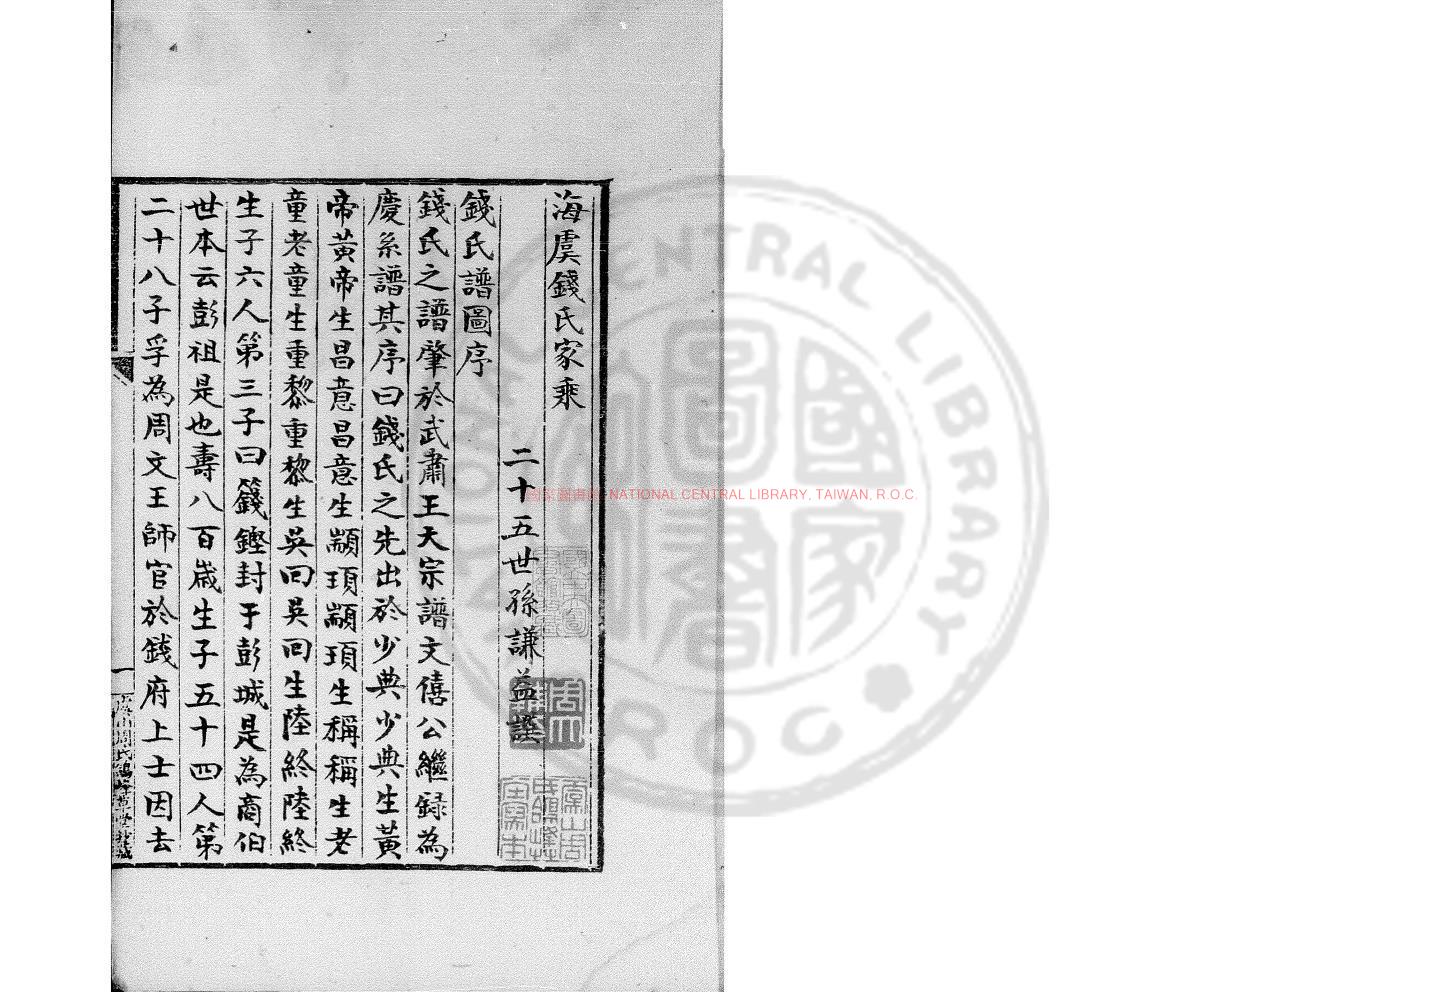 海虞錢氏家乘
二十五世孫謙益譔
錢氏譜圖序
錢氏之譜肇於武肅王天宗譜文僖公繼録為
慶系譜其序曰錢氏之先出於少典少典生黃
帝黃帝生昌意昌意生顓頊顓頊生稱稱生老
童老童生重黎重黎生吳回吳回生陸終陸終
生子六人第三子曰籛鏗封于彭城是為商伯
世本云彭祖是也壽八百歲生子五十四人第
二十八子孚為周文王師官於錢府上士因去
一
虞山周氏鴿峰草堂鈔藏
國家圖書館 NATIONAL CENTRAL LIBRARY, TAIWAN, R.O.C.
NATIONAL CENTRAL LIBRARY
R O C
國家圖書